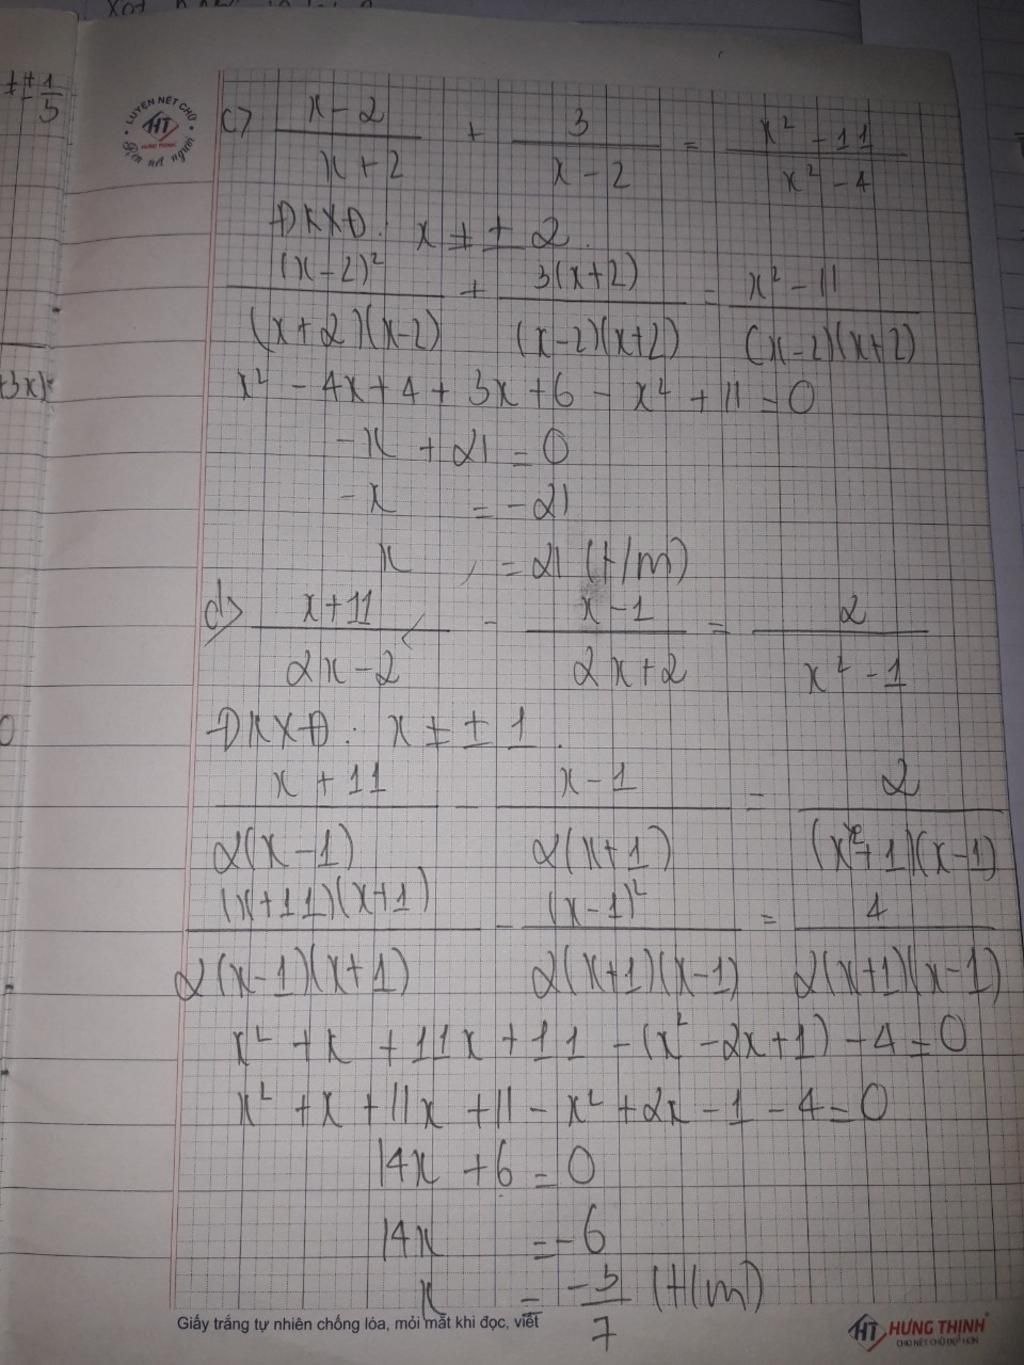 ± ± 1/5
LUYỆN NÉT CHỮ
HT
HƯNG THỊNH
Rèn nét người
c) (x-2)/(x+2) + 3/(x-2) = (x² - 11)/(x² - 4)
ĐKXĐ: x ≠ ± 2.
(x-2)²/((x+2)(x-2)) + 3(x+2)/((x-2)(x+2)) = (x² - 11)/((x-2)(x+2))
+3x)
x² - 4x + 4 + 3x + 6 - x² + 11 = 0
-x + 21 = 0
-x = -21
x = 21 (t/m)
d) (x+11)/(2x-2) - (x-1)/(2x+2) = 2/(x² - 1)
ĐKXĐ: x ≠ ± 1.
(x+11)/(2(x-1)) - (x-1)/(2(x+1)) = 2/((x+1)(x-1))
(x+11)(x+1)/(2(x-1)(x+1)) - (x-1)²/(2(x+1)(x-1)) = 4/(2(x+1)(x-1))
x² + x + 11x + 11 - (x² - 2x + 1) - 4 = 0
x² + x + 11x + 11 - x² + 2x - 1 - 4 = 0
14x + 6 = 0
14x = -6
x = -3/7 (t/m)
Giấy trắng tự nhiên chống lóa, mỏi mắt khi đọc, viết
HT HƯNG THỊNH
CHO NÉT CHỮ ĐẸP HƠN